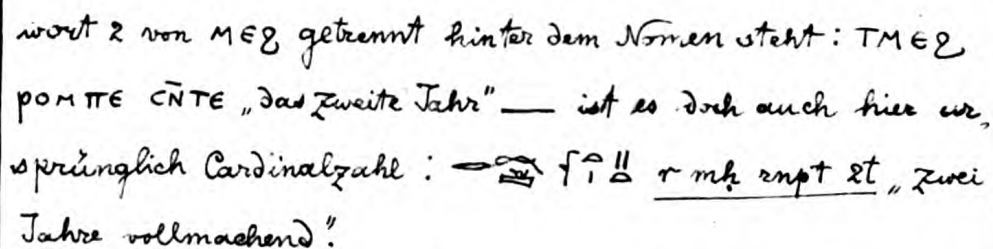 wort 2 von ⲙⲉϩ getrennt hinter dem Nomen steht: ⲧⲙⲉϩ
ⲣⲟⲙⲡⲉ ⲥⲛ̄ⲧⲉ „das zweite Jahr" — ist es doch auch hier ur-
sprünglich Cardinalzahl: r mḥ rnpt 2t „zwei
Jahre vollmachend".